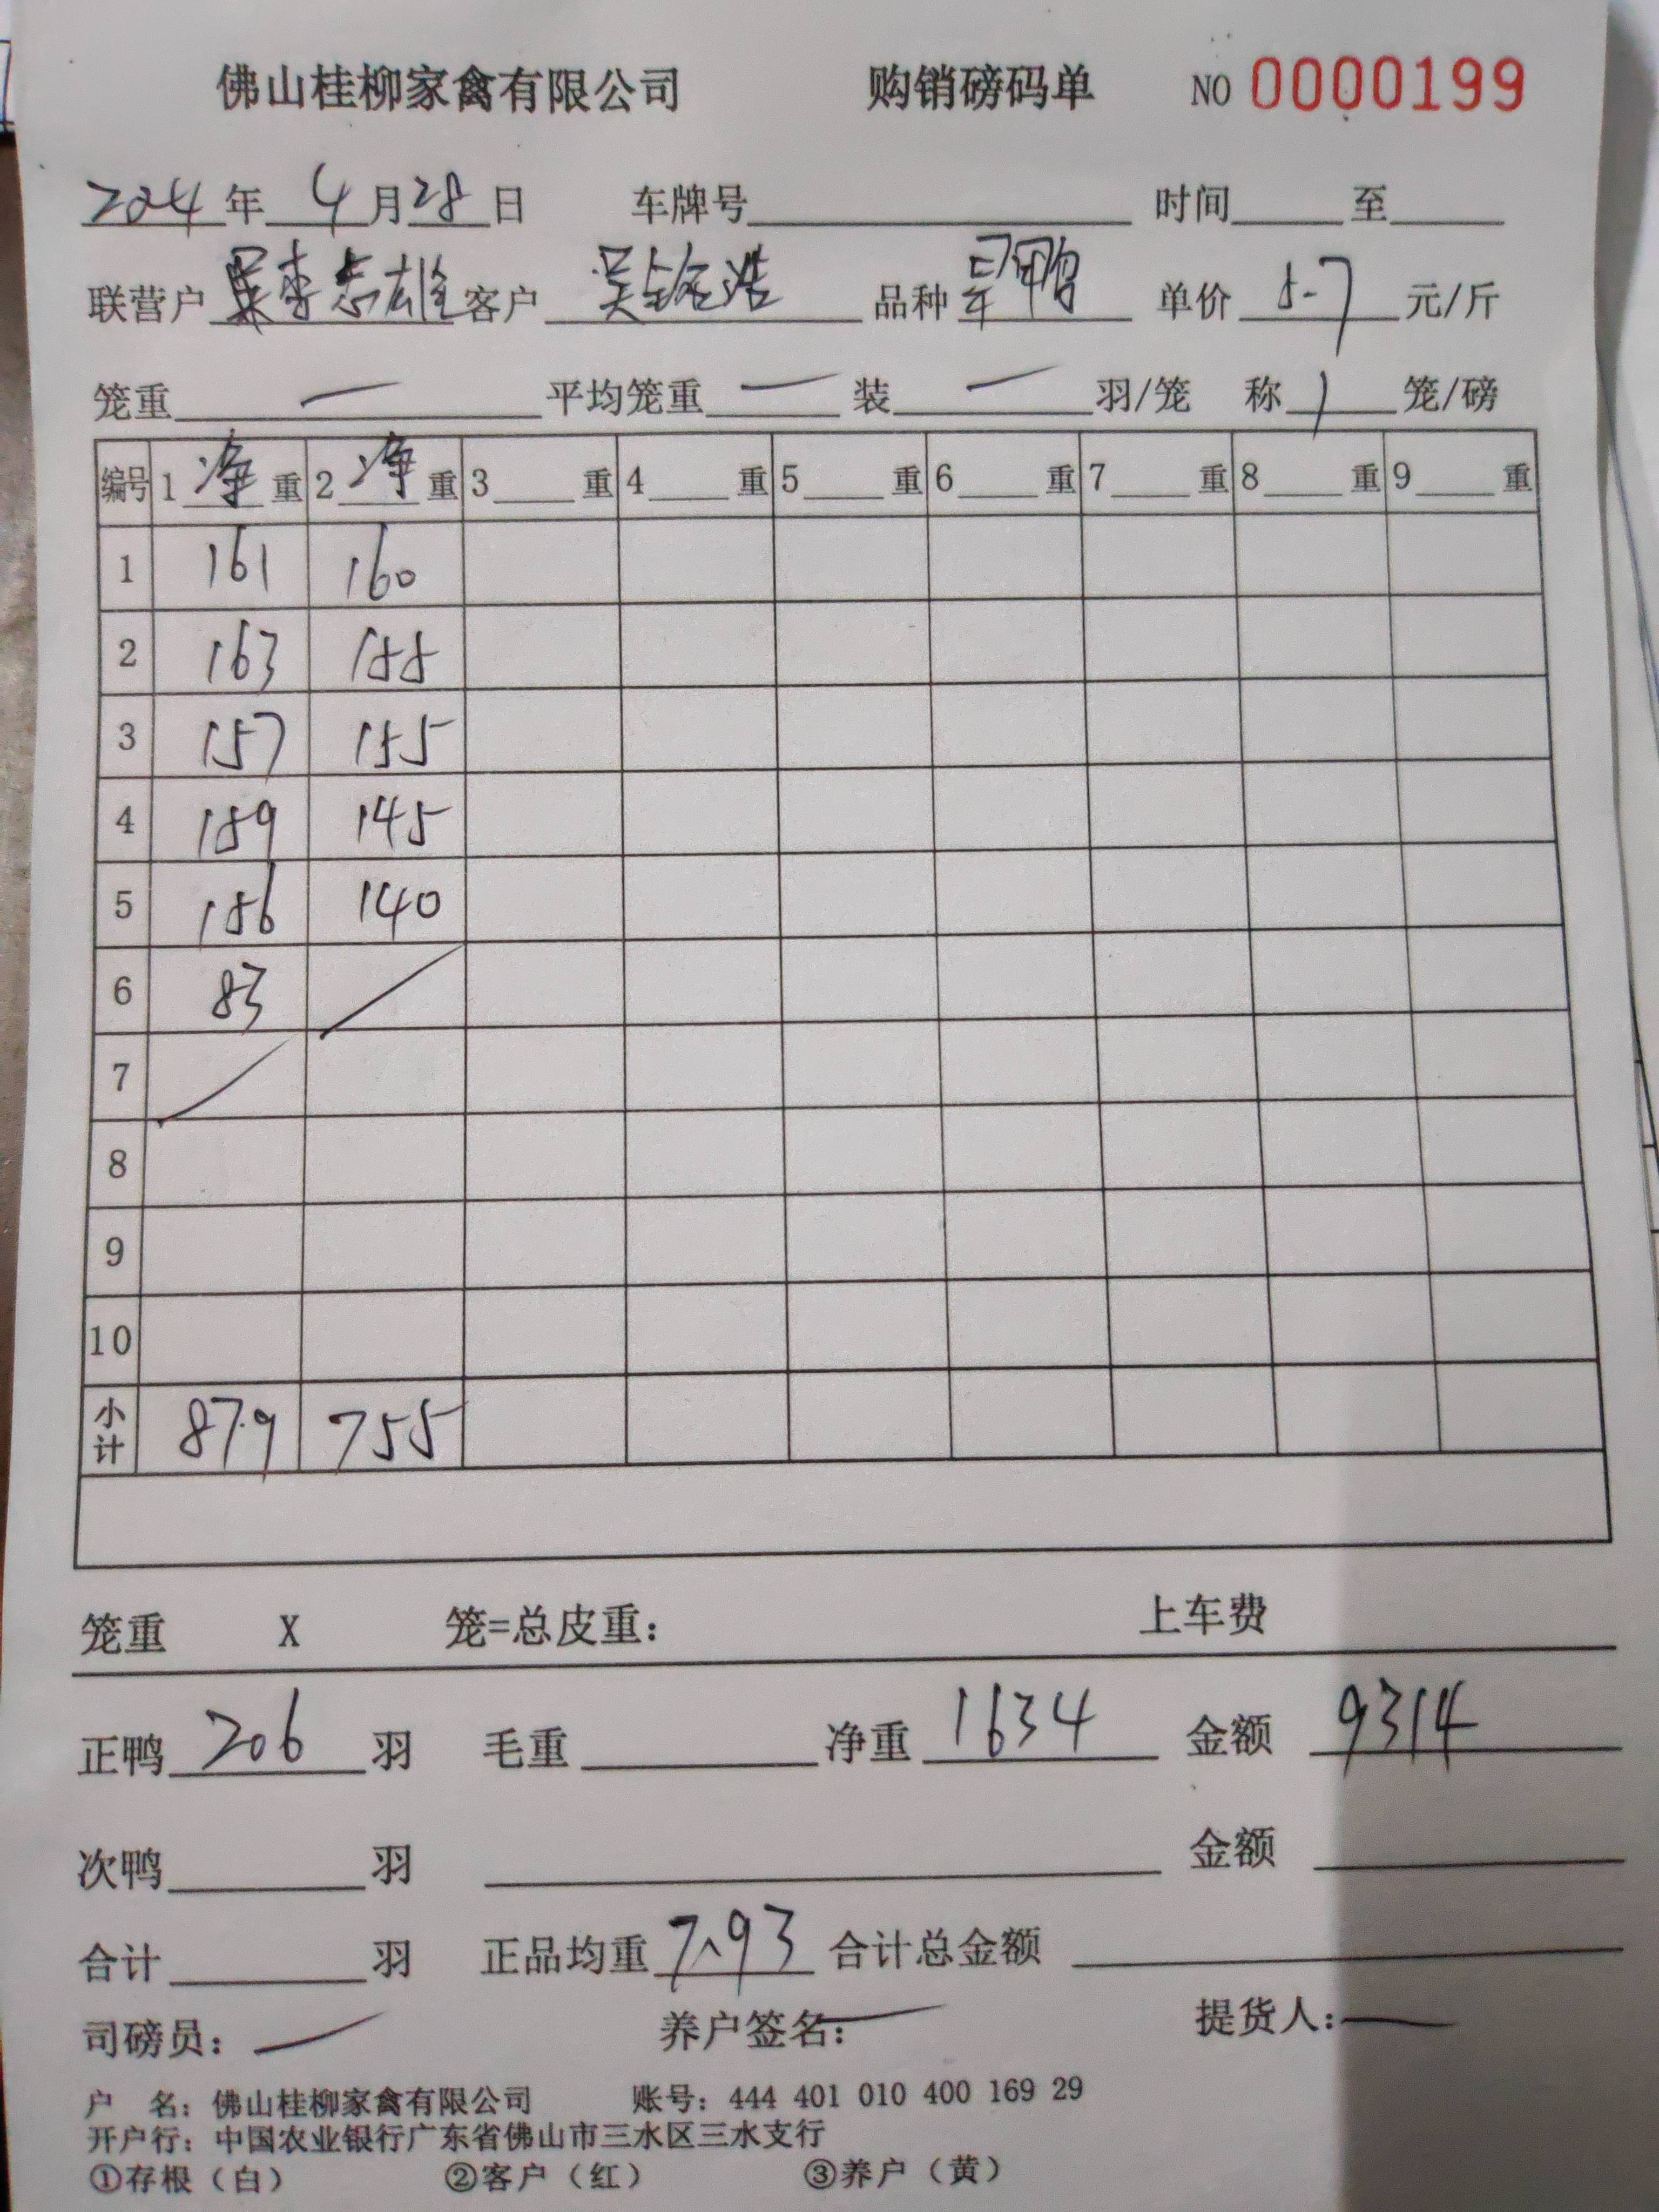 佛山桂柳家禽有限公司 购销磅码单 NO 0000199
2024年 4月28日 车牌号 时间 至
联营户 李志雄 客户 吴 浩 品种 鸭 单价 5.7 元/斤
笼重 一 平均笼重 一 装 一 羽/笼 称 1 笼/磅
编号 1 净 重 2 净 重 3 重 4 重 5 重 6 重 7 重 8 重 9 重
1 161 160
2 163 155
3 157 155
4 159 145
5 156 140
6 83
7
8
9
10
小计 879 755
笼重 X 笼=总皮重: 上车费
正鸭 206 羽 毛重 净重 1634 金额 9314
次鸭 羽 金额
合计 羽 正品均重 7.93 合计总金额
司磅员: 一 养户签名: 一 提货人: 一
户 名: 佛山桂柳家禽有限公司 账号: 444 401 010 400 169 29
开户行: 中国农业银行广东省佛山市三水区三水支行
①存根（白） ②客户（红） ③养户（黄）